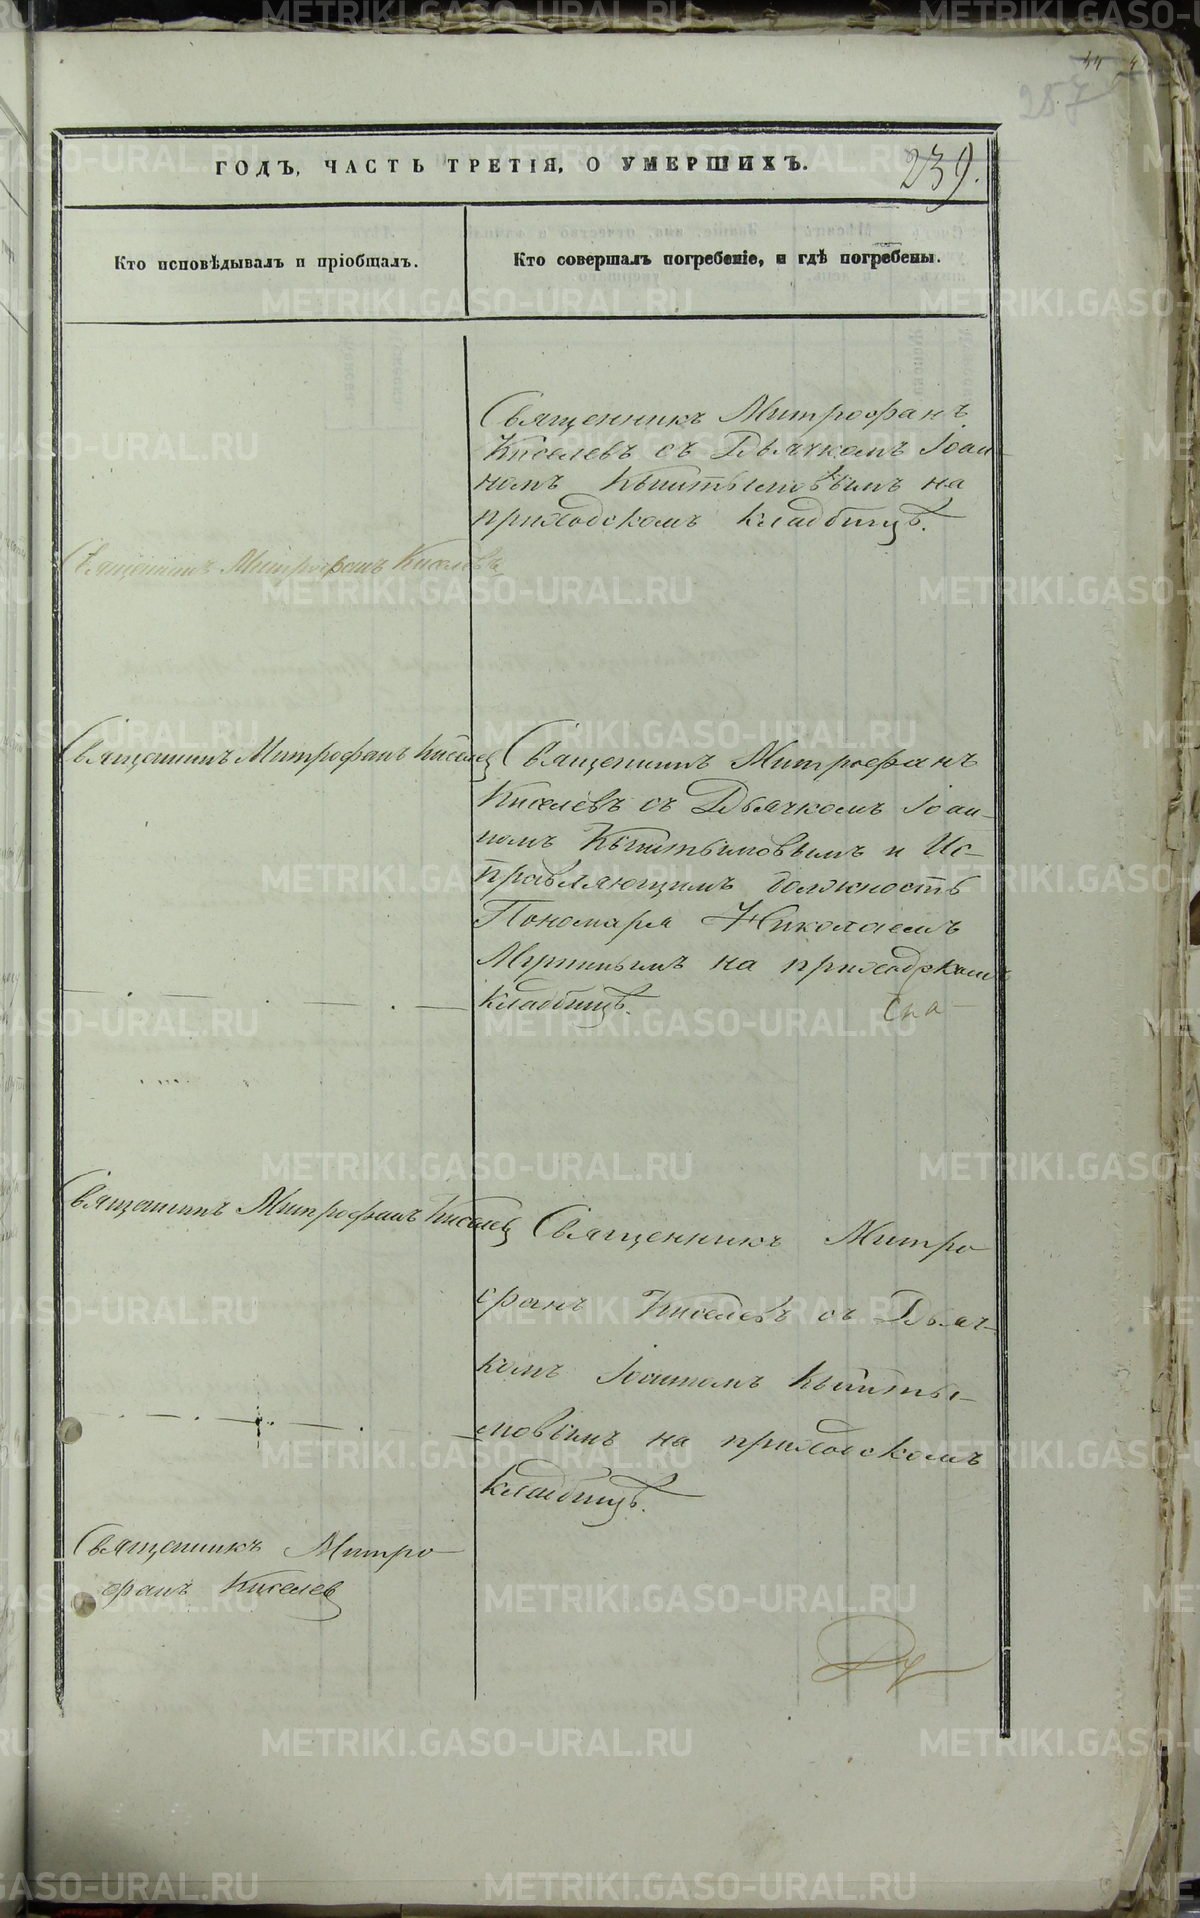 257
239.
ГОДЪ, ЧАСТЬ ТРЕТІЯ, О УМЕРШИХЪ.
Кто исповѣдывалъ и пріобщалъ.
Кто совершалъ погребеніе, и гдѣ погребены.
Священникъ Митрофанъ
Киселевъ съ Дьячкомъ Іоан-
номъ Кыштымовымъ на
приходскомъ кладбищѣ.
Священникъ Митрофанъ Киселевъ
Священникъ Митрофанъ Киселев
Священникъ Митрофанъ
Киселевъ съ Дьячкомъ Іоан-
номъ Кыштымовымъ и Ис-
правляющимъ должность
Пономаря Николаемъ
на приходскомъ
кладбищѣ.
Священникъ Митрофанъ Киселев
Священникъ Митро
фанъ Киселевъ съ Дьяч-
комъ Іоанномъ Кышты-
мовымъ на приходскомъ
кладбищѣ.
Священникъ Митро
фанъ Киселев
METRIKI.GASO-URAL.RU